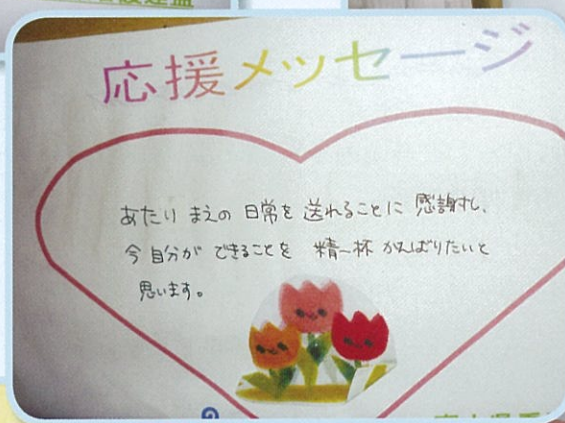 応援メッセージ
あたりまえの 日常を 送れることに 感謝し、
今自分が できることを 精一杯 がんばりたいと
思います。